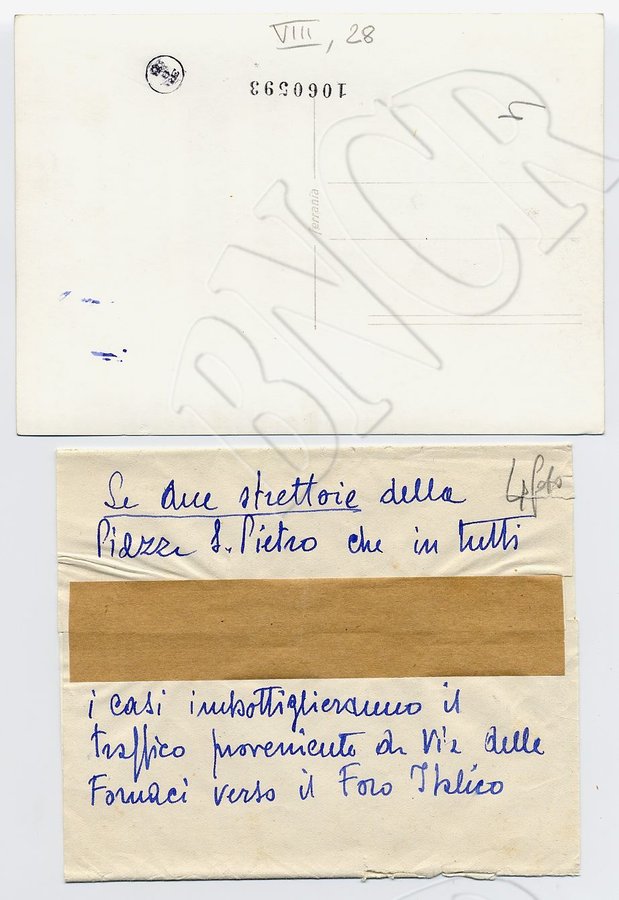 VIII, 28
1060593
ferrania
BNCR
Le due strettoie della
Piazza S. Pietro che in tutti
i casi imbottiglieranno il
traffico proveniente da Via delle
Fornaci verso il Foro Italico